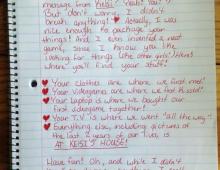 message from KEISI? Yeah? You?
But don't worry, I didn't
break anything! Actually, I was
nice enough to package your
things! And I even invented a neat
game, since I know you like
looking for things like other girls! Here's
where you'll find your stuff:
Your clothes are where we first met!
Your Videogames are where we first kissed!
Your laptop is where we bought our
first videogame together!
Your T.V. is where we went "all the way"!
Everything else, including pictures of
the last 2 years of our lives is
AT KEISI'S HOUSE!
Have fun! Oh, and while I didn't